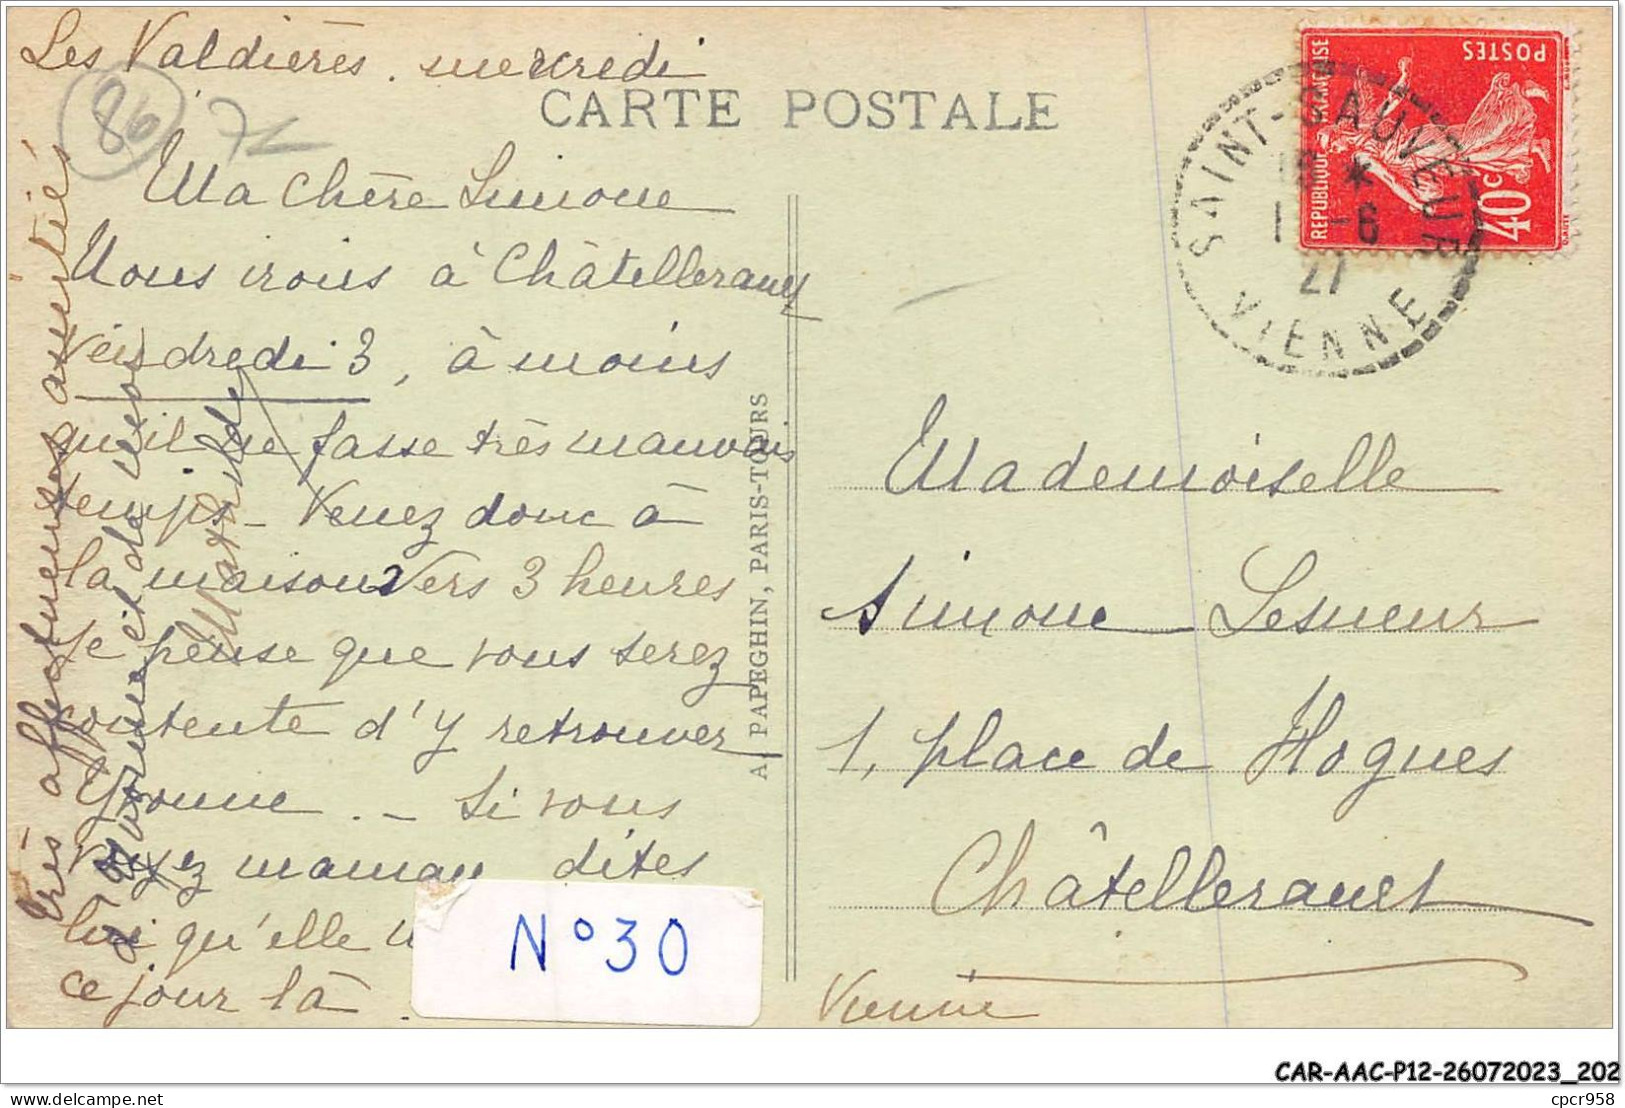 Les Valdières. mercredi
86
CARTE POSTALE
Ma chère Simone
Nous irons à Châtellerault
vendredi 3, à moins
qu'il ne fasse très mauvais
temps - Venez donc à
la maison vers 3 heures
Je pense que vous serez
contente d'y retrouver
Yvonne. - Si vous
voyez maman dites
lui qu'elle
ce jour là.
Très affectueuses amitiés
d'Yvonne et de moi
Mathilde
N° 30
A. PAPEGHIN, PARIS-TOURS
REPUBLIQUE FRANÇAISE
POSTES
40c
SAINT-SAUVEUR
18 *
1 -6
27
VIENNE
Mademoiselle
Simone Lesueur
1, place de Hogues
Châtellerault
Vienne
CAR-AAC-P12-26072023_202
delcampe.net
cpcr958